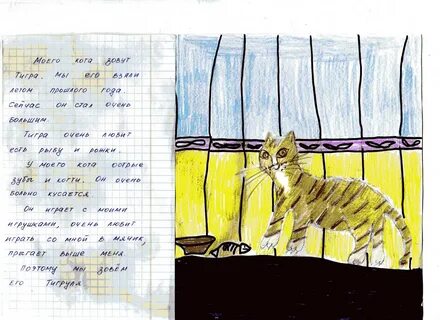 Моего кота зовут
Тигра. Мы его взяли
летом прошлого года.
Сейчас он стал очень
большим.
Тигра очень любит
есть рыбу и рожки.
У моего кота острые
зубы и когти. Он очень
больно кусается.
Он играет с моими
игрушками, очень любит
играть со мной в мячик,
прыгает выше меня
Поэтому мы зовём
его Тигруля